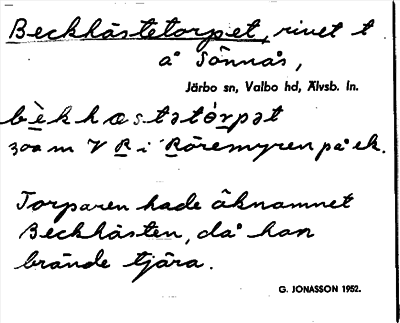 Beckhästetorpet, rivet t
å Sönnås,
Järbo sn, Valbo hd, Älvsb. ln.
bèkhæstətòrpət
300 m V R i Röremyren på ek.
Torparen hade öknamnet
Beckhästen, då han
brände tjära.
G. JONASSON 1952.